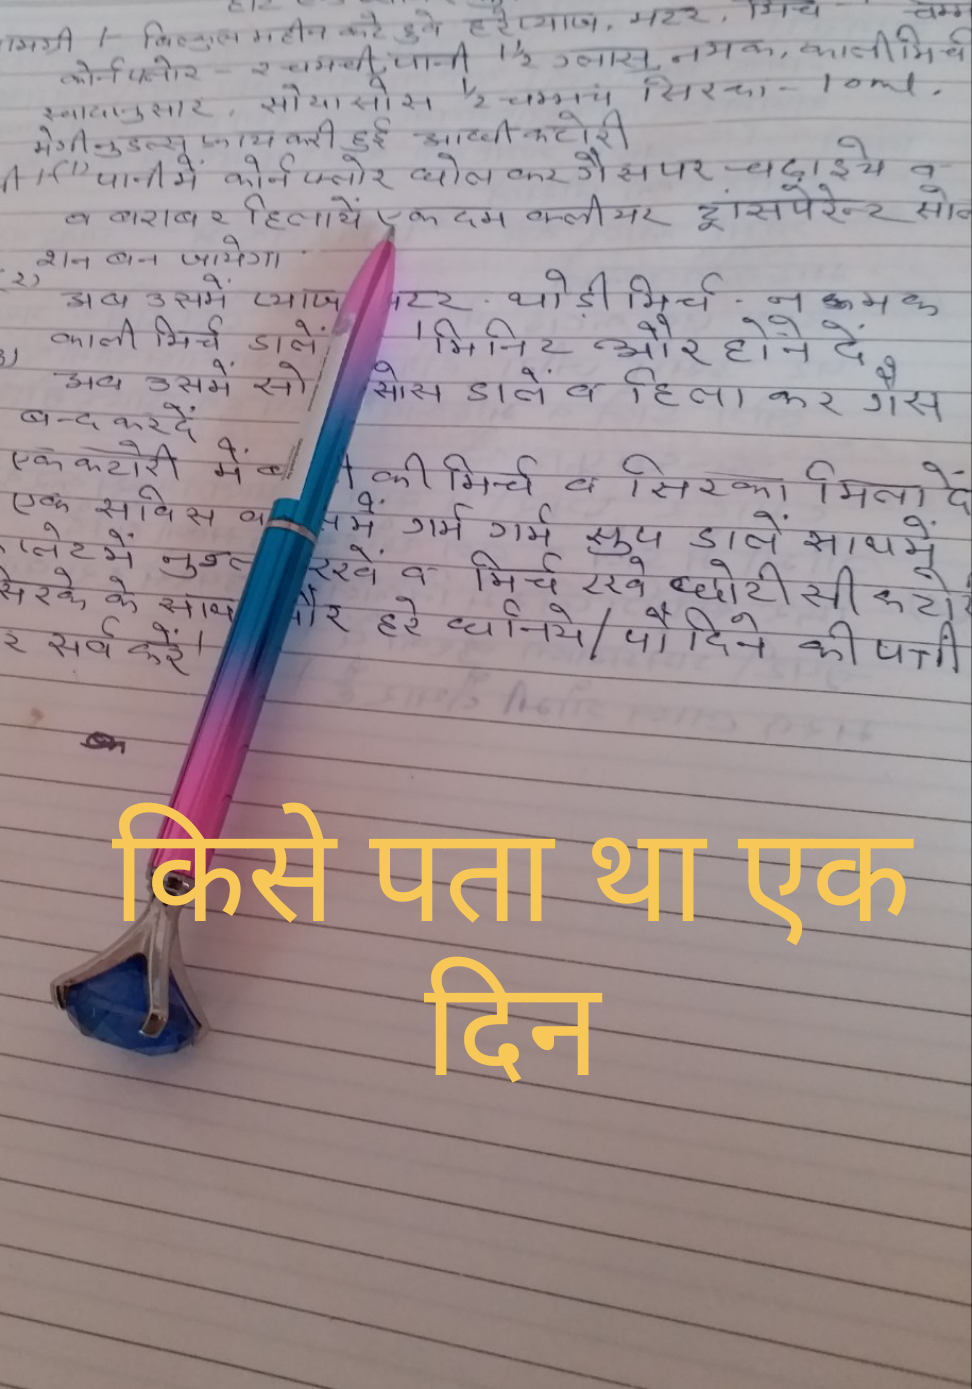 सामग्री 1- बिल्कुल महीन कटे हुवे हरे प्याज, मटर, मिर्च चम्म
कोर्नफ्लोर - २ चमची, पानी 1½ ग्लास, नमक, कालीमिर्च
स्वादानुसार, सोयासोस ½ चम्मच सिरका - 10ml.
मेगी नुडल्स फ्राय करी हुई आधी कटोरी
(1) पानी में कोर्नफ्लोर घोल कर गैस पर चढ़ाइये व
व बराबर हिलायें एकदम क्लीयर ट्रांसपेरेन्ट सोल
शन बन जायेगा
२) अब उसमें प्याज मटर थोड़ी मिर्च नमक
काली मिर्च डालें 1 मिनिट और होने दें
3) अब उसमें सो सोस डालें व हिला कर गैस
बन्द कर दें
एक कटोरी में की मिर्च व सिरका मिला दें
एक सर्विस में गर्म गर्म सुप डालें साथ में
प्लेट में रखें व मिर्च रखे छोटी सी कटो
सिरके के साथ और हरे धनिये/पोदिने की पत्ती
र सर्व करें।
किसे पता था एक
दिन